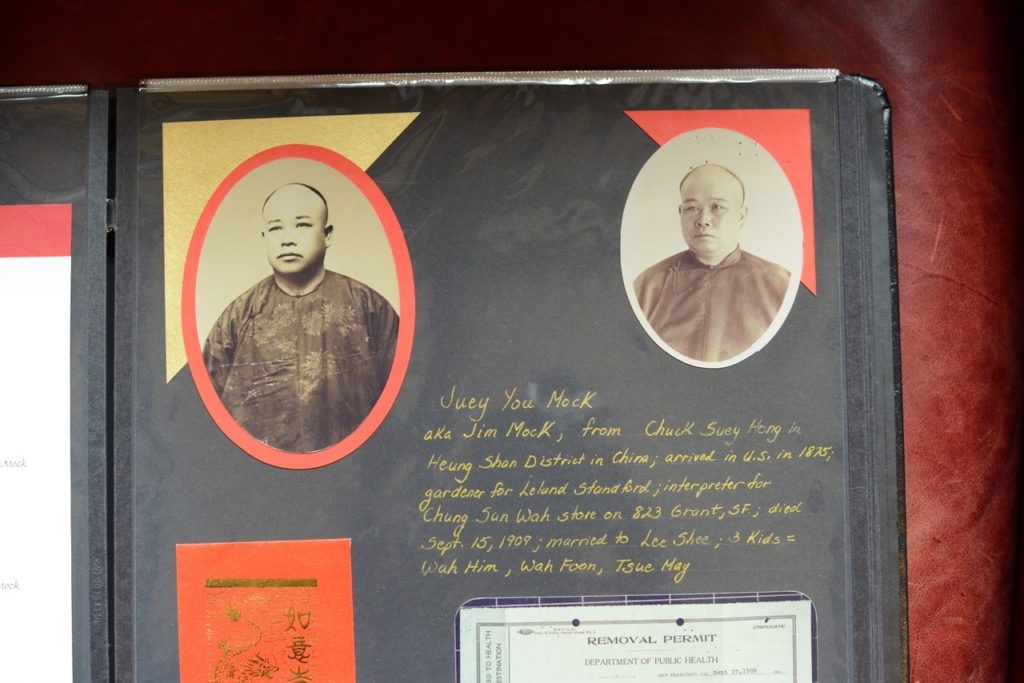 Mock
Mock
Juey You Mock
aka Jim Mock, from Chuck Suey Hong in
Heung Shan District in China; arrived in U.S. in 1875;
gardener for Leland Standford; interpreter for
Chung Sun Wah store on 823 Grant, SF.; died
Sept. 15, 1909; married to Lee Shee; 3 Kids =
Wah Him, Wah Foon, Tsue May
如意吉
(TRIPLICATE)
REMOVAL PERMIT
DEPARTMENT OF PUBLIC HEALTH
SAN FRANCISCO, CAL. Sept 17, 1909
TO HEALTH
DESTINATION